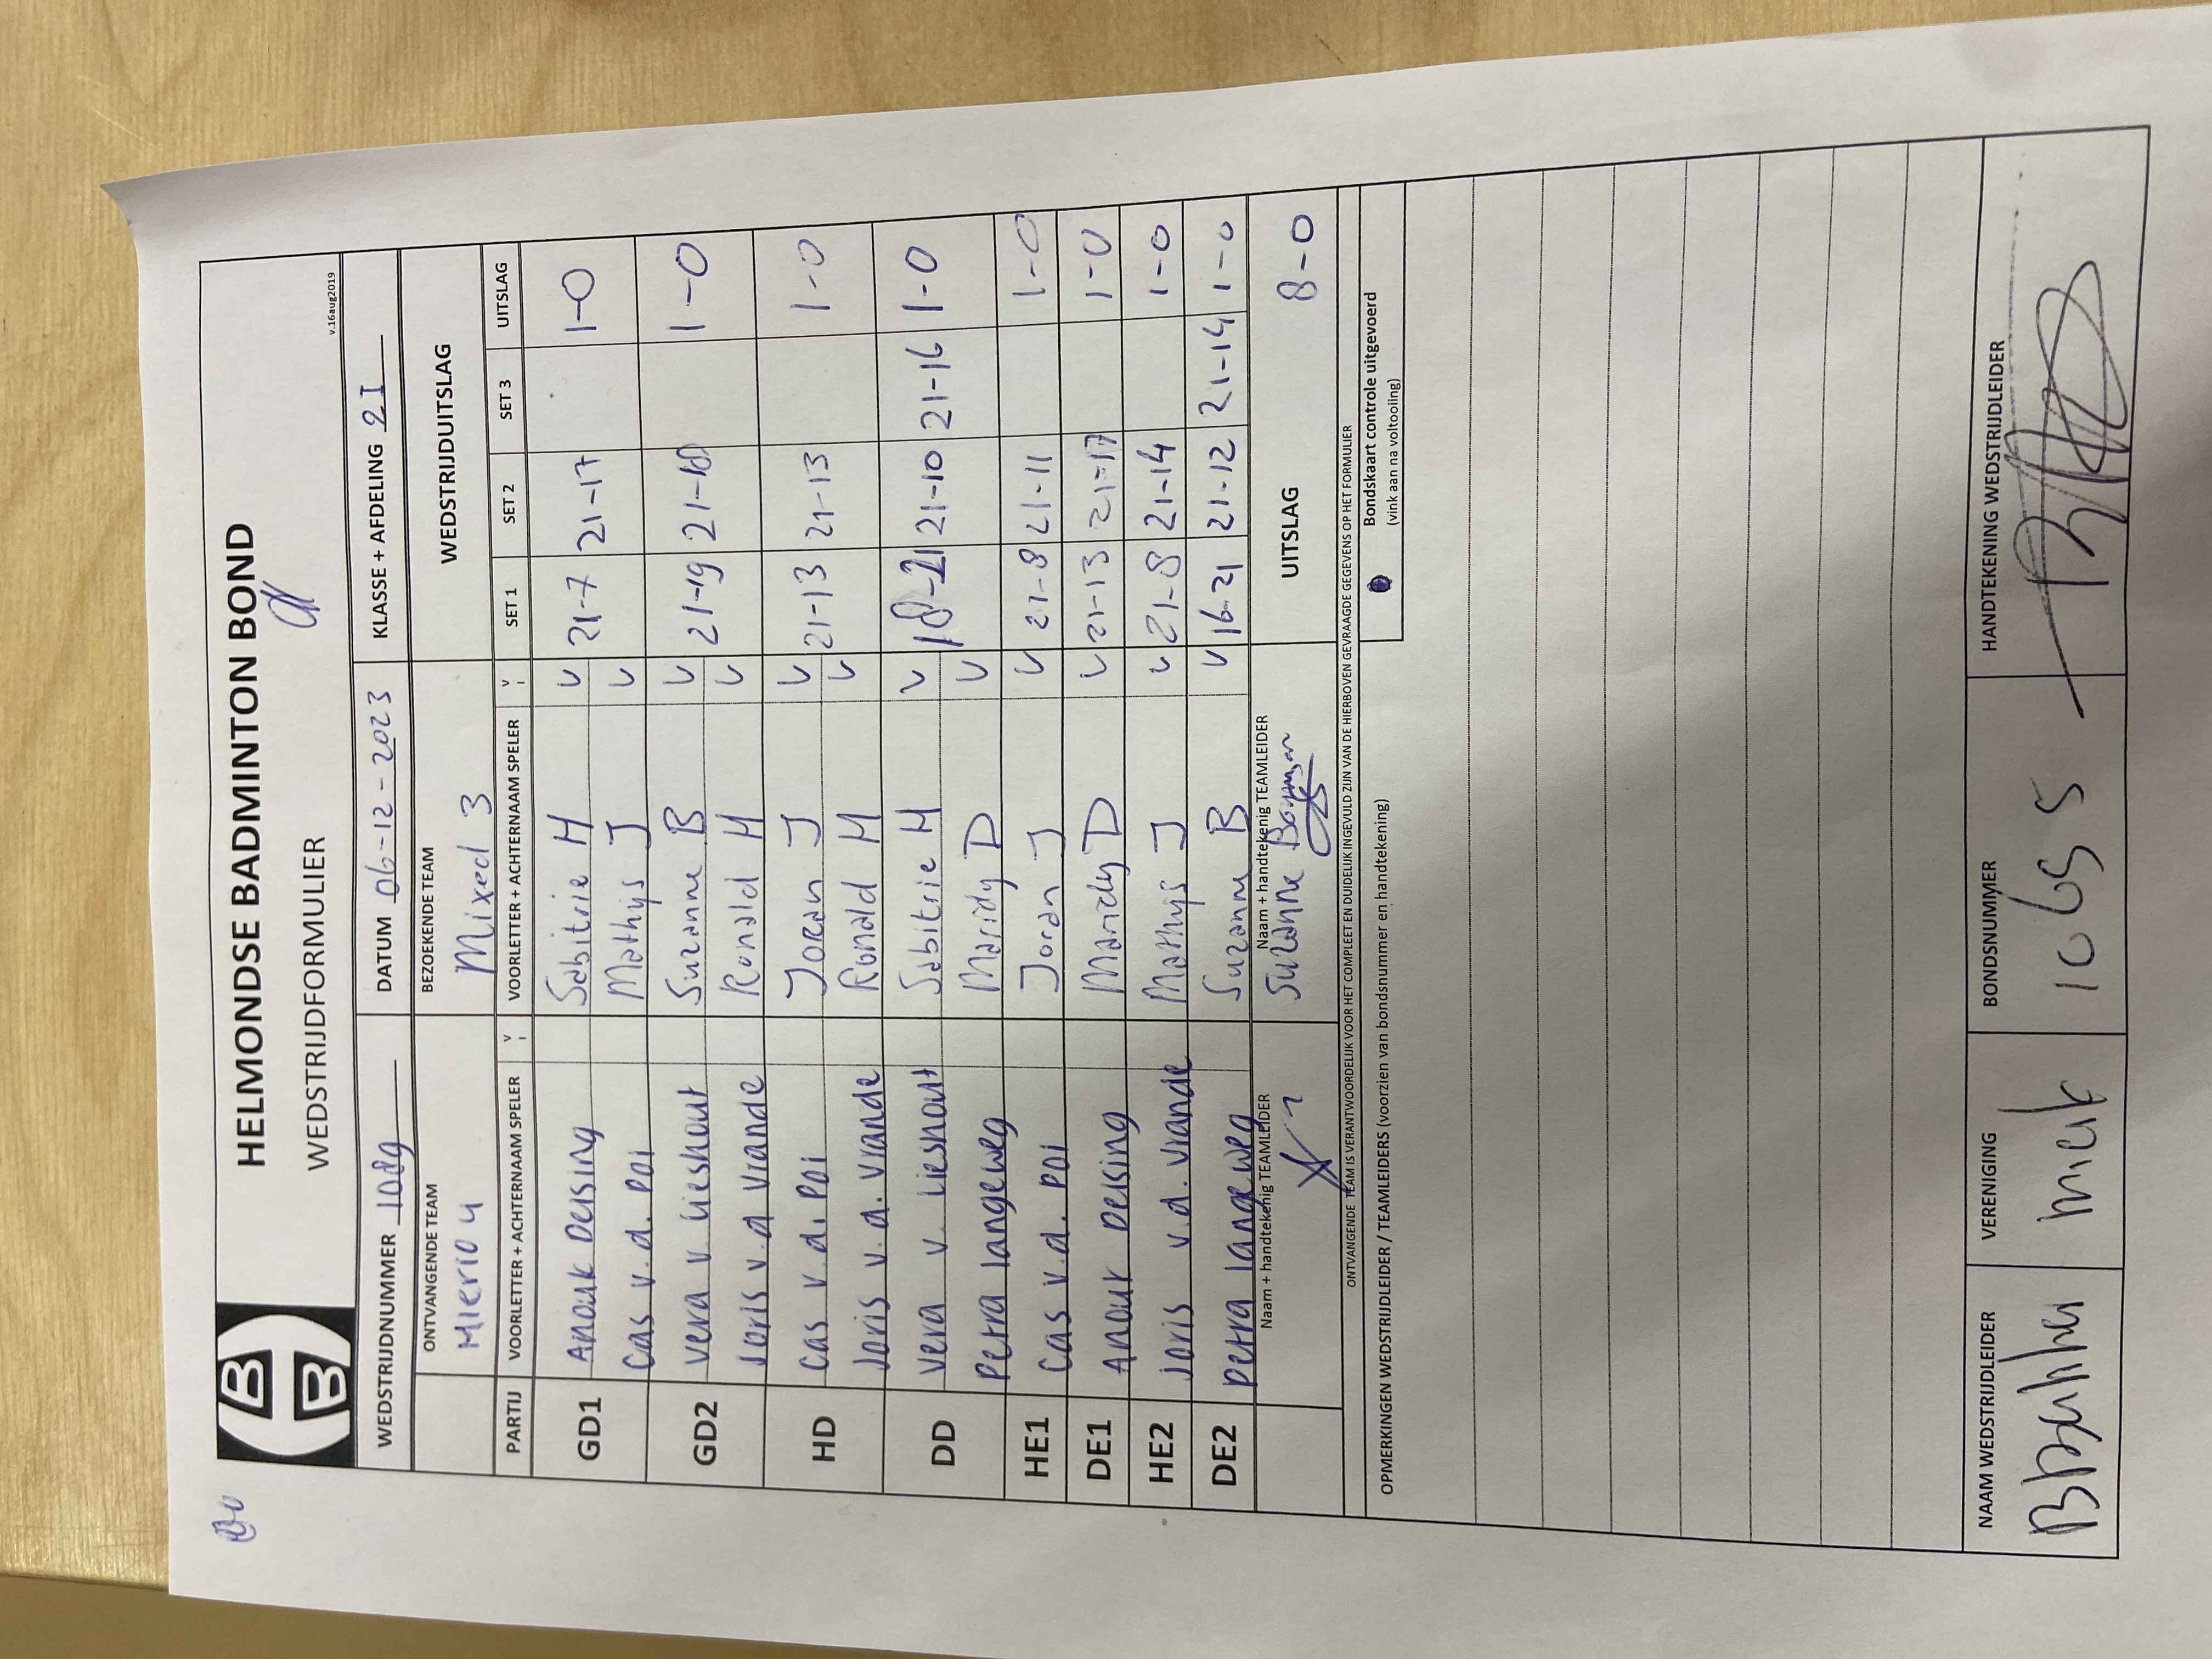 HELMONDSE BADMINTON BOND
WEDSTRIJDFORMULIER
v.16aug2019
WEDSTRIJDNUMMER 1089 DATUM 06-12-2023 KLASSE + AFDELING 2I
ONTVANGENDE TEAM BEZOEKENDE TEAM WEDSTRIJDUITSLAG
Mierlo 4 Mixed 3
PARTIJ VOORLETTER + ACHTERNAAM SPELER V VOORLETTER + ACHTERNAAM SPELER V SET 1 SET 2 SET 3 UITSLAG
GD1 Anouk Deising Sabitrie H V 21-7 21-17 1-0
Cas v.d. Poi Mathys J V
GD2 Vera v Lieshout Suzanne B V 21-19 21-18 1-0
Joris v.d Vrande Ronald H V
HD Cas v.d. Poi Joran J V 21-13 21-13 1-0
Joris v.d. Vrande Ronald H V
DD Vera v. Lieshout Sabitrie H V 18-21 21-10 21-16 1-0
Petra Langeweg Maridy D V
HE1 Cas v.d. Poi Joran J V 21-8 21-11 1-0
DE1 Anouk Deising Maridy D V 21-13 21-17 1-0
HE2 Joris v.d. Vrande Mathys J V 21-8 21-14 1-0
DE2 Petra Langeweg Suzanne B V 16-21 21-12 21-14 1-0
Naam + handtekenig TEAMLEIDER Naam + handtekenig TEAMLEIDER UITSLAG 8-0
Suzanne
ONTVANGENDE TEAM IS VERANTWOORDELIJK VOOR HET COMPLEET EN DUIDELIJK INGEVULD ZIJN VAN DE HIERBOVEN GEVRAAGDE GEGEVENS OP HET FORMULIER
OPMERKINGEN WEDSTRIJDLEIDER / TEAMLEIDERS (voorzien van bondsnummer en handtekening) Bondskaart controle uitgevoerd
(vink aan na voltooiing)
NAAM WEDSTRIJDLEIDER VERENIGING BONDSNUMMER HANDTEKENING WEDSTRIJDLEIDER
1065 5